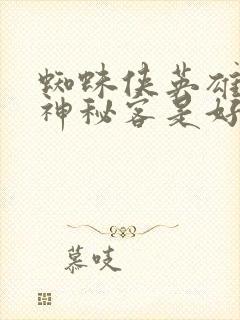 蜘蛛侠英雄
神秘客是好
慕吱